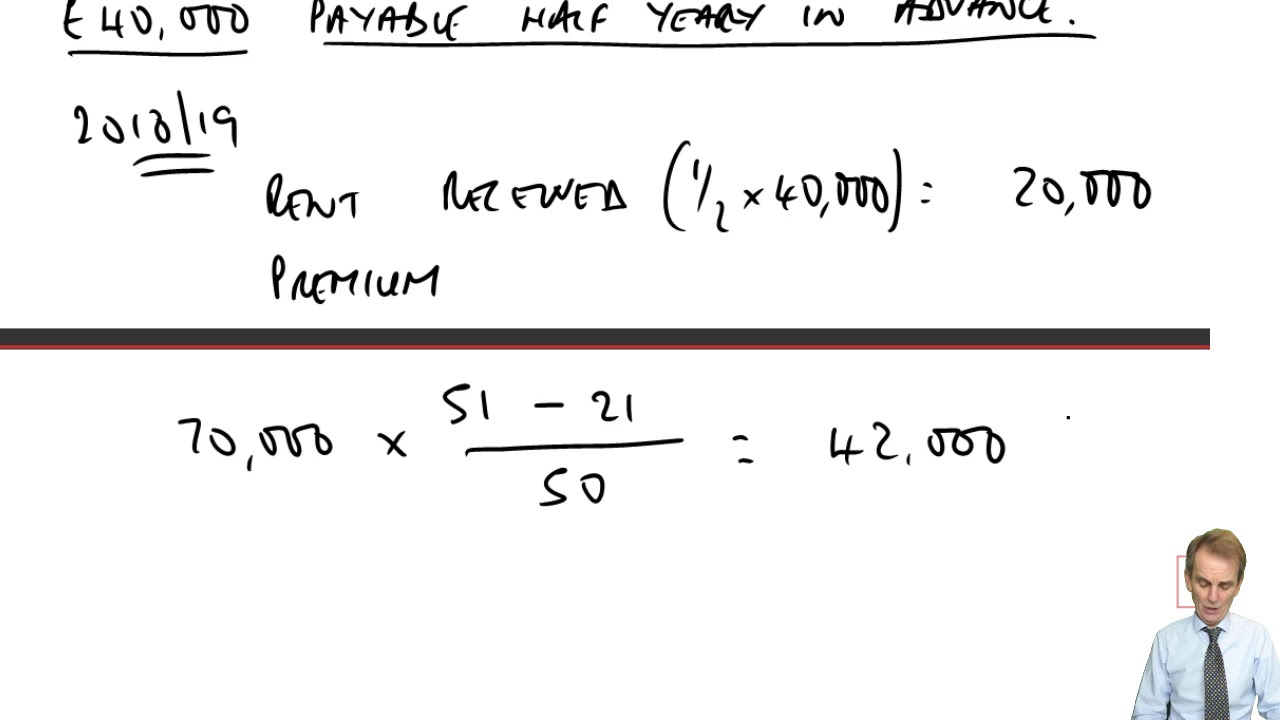 £40,000 PAYABLE HALF YEARY IN ADVANCE.
2018/19
RENT RECEIVED (1/2 × 40,000) = 20,000
PREMIUM
70,000 × 51 - 21 / 50 = 42,000